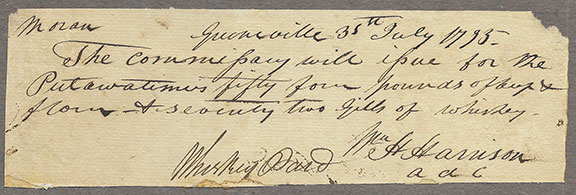 Moran Greeneville 31th July 1795.
The commissary will issue for the
Putawatimes fifty four pounds of beef &
flour & seventy two Gills of whiskey.
Wm H Harrison
Whiskey Paid a d c